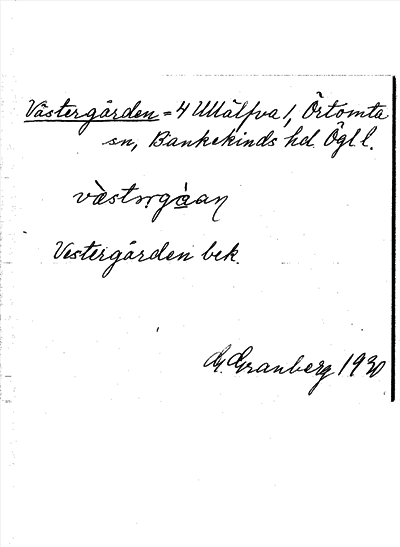 Västergården = 4 Ullälfva /, Örtomta
sn, Bankekinds hd. Ögl l.
Vestergården bek.
G. Granberg 1930